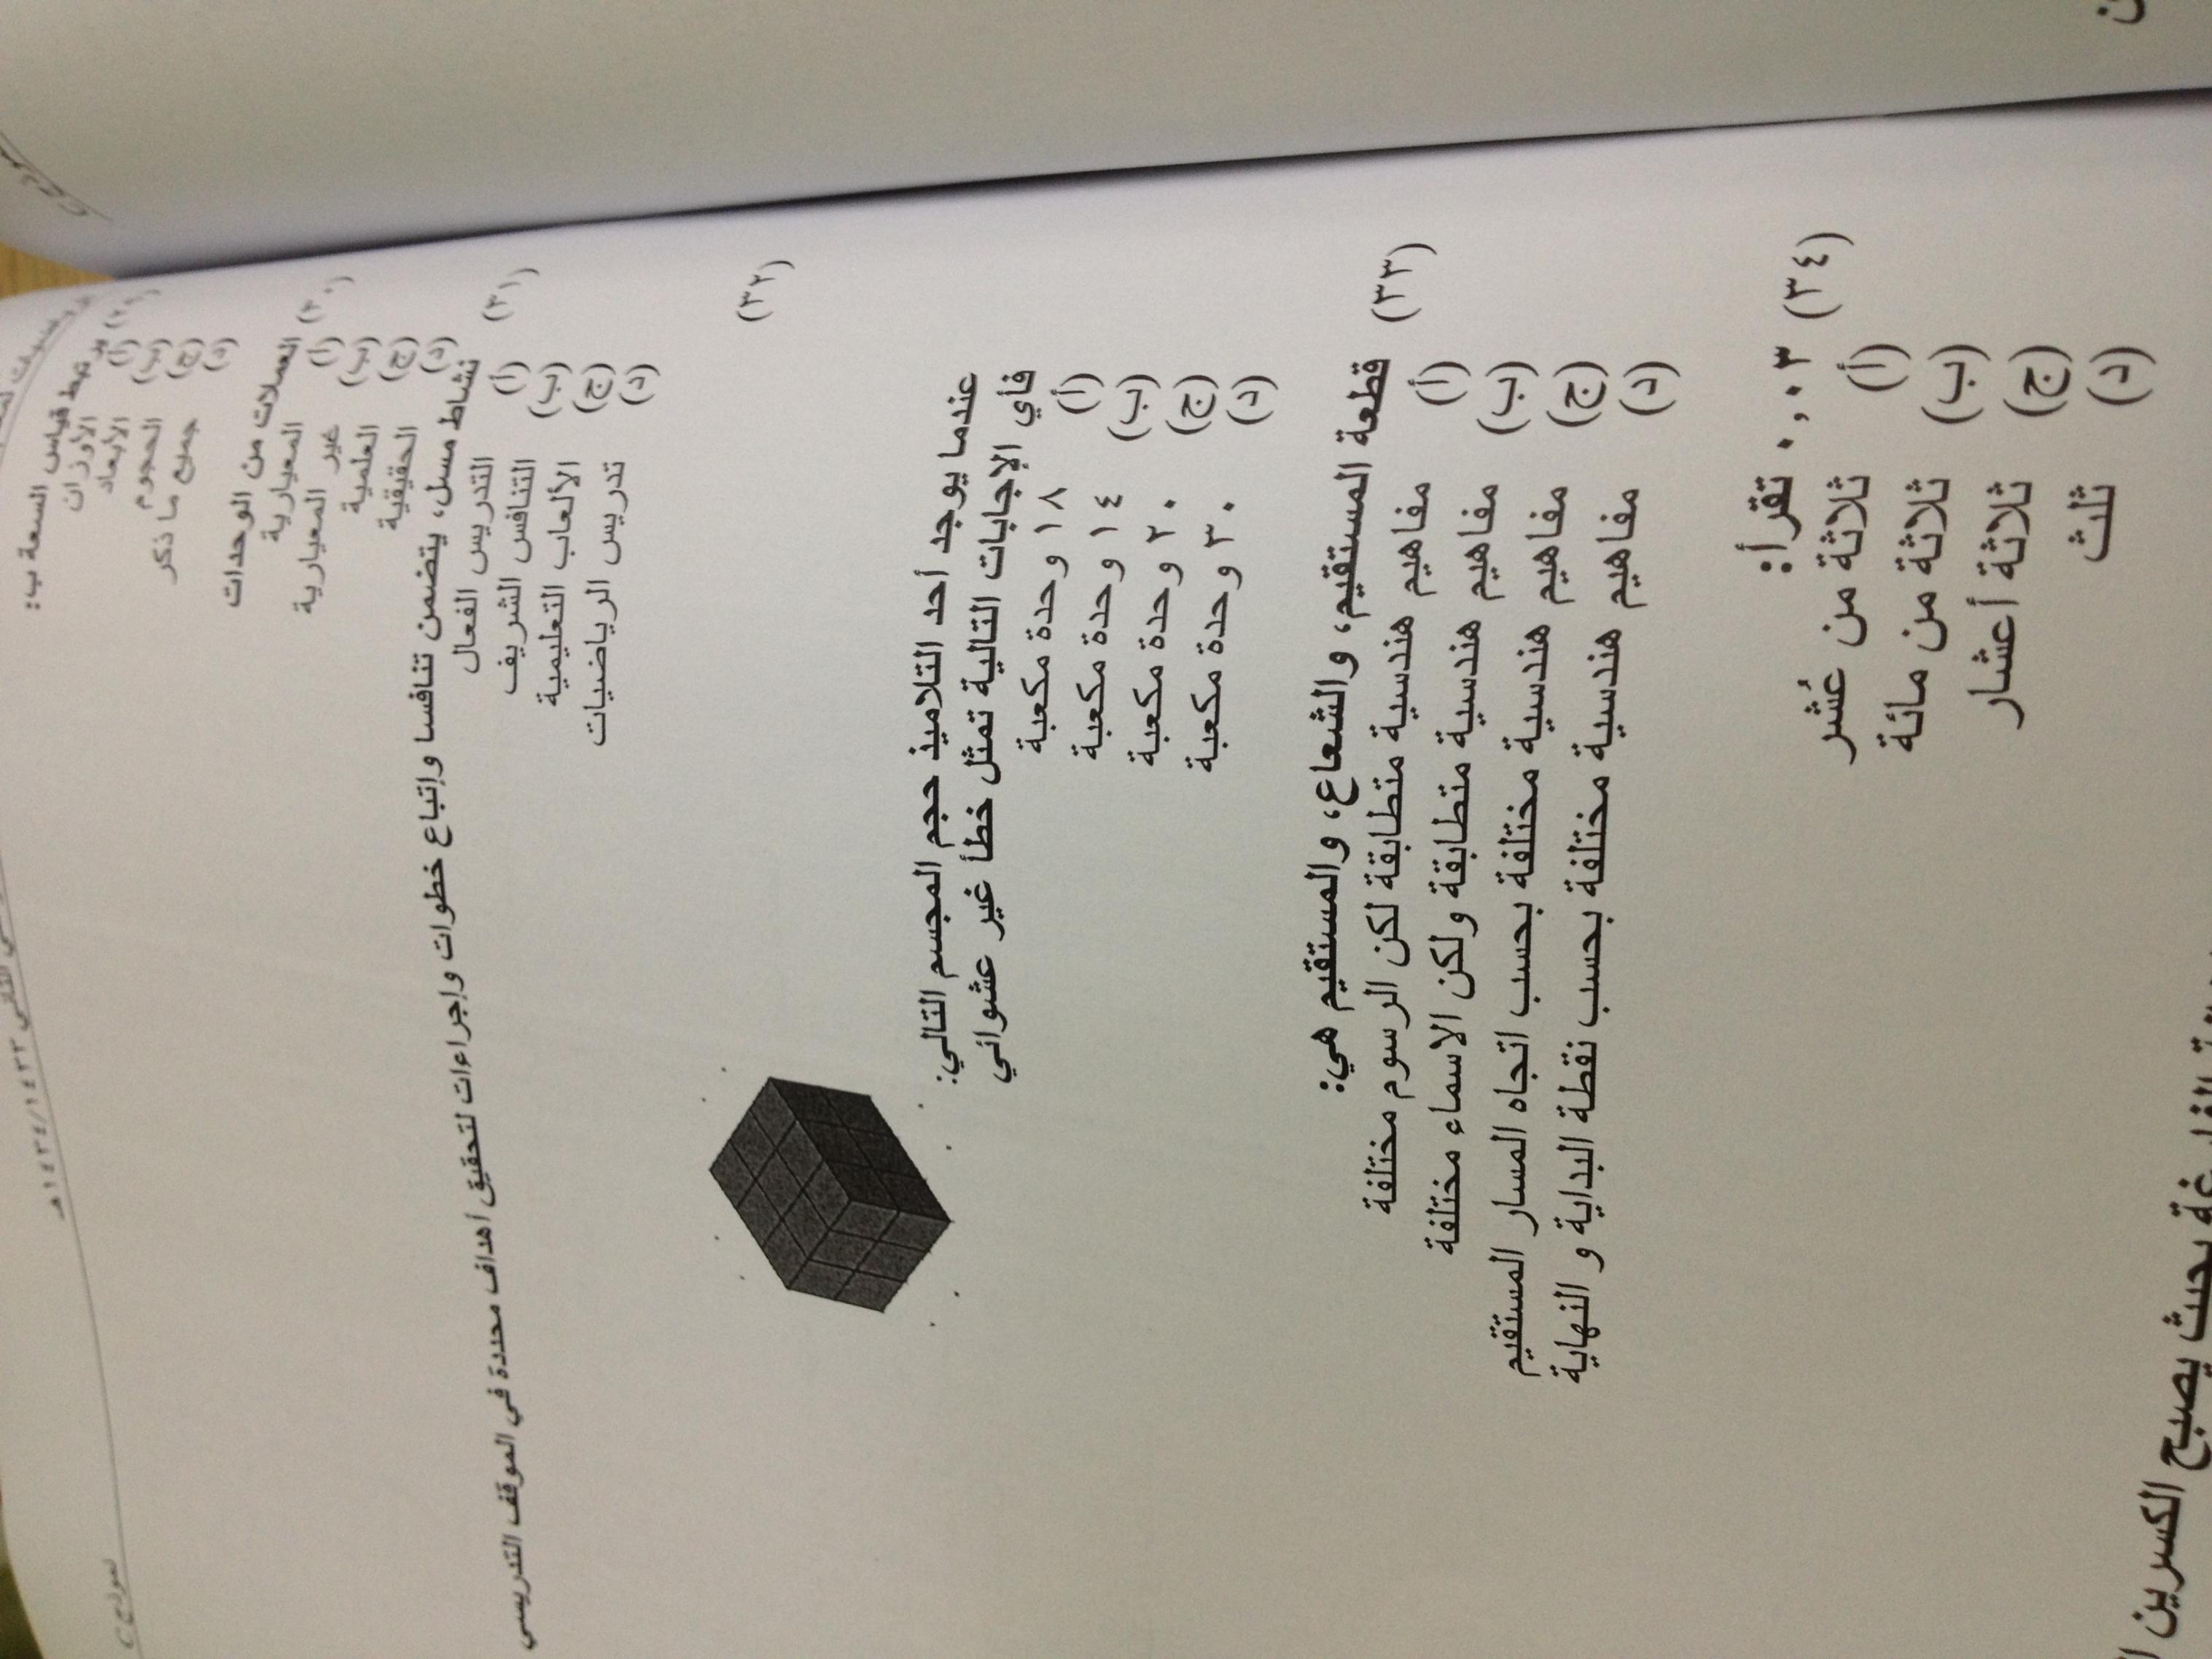 نموذج C
(٢٩) يرتبط قياس السعة ب:
(أ) الأوزان
(ب) الأبعاد
(ج) الحجوم
(د) جميع ما ذكر
(٣٠) العملات من الوحدات
(أ) المعيارية
(ب) غير المعيارية
(ج) العلمية
(د) الحقيقية
(٣١) نشاط مسل، يتضمن تنافسا وإتباع خطوات وإجراءات لتحقيق أهداف محددة في الموقف التدريسي
(أ) التدريس الفعال
(ب) التنافس الشريف
(ج) الألعاب التعليمية
(د) تدريس الرياضيات
(٣٢)
عندما يوجد أحد التلاميذ حجم المجسم التالي:
فأي الإجابات التالية تمثل خطأ غير عشوائي
(أ) ١٨ وحدة مكعبة
(ب) ١٤ وحدة مكعبة
(ج) ٢٠ وحدة مكعبة
(د) ٣٠ وحدة مكعبة
(٣٣) قطعة المستقيم، والشعاع، والمستقيم هي:
(أ) مفاهيم هندسية متطابقة لكن الرسوم مختلفة
(ب) مفاهيم هندسية متطابقة ولكن الاسماء مختلفة
(ج) مفاهيم هندسية مختلفة بحسب اتجاه المسار المستقيم
(د) مفاهيم هندسية مختلفة بحسب نقطة البداية و النهاية
(٣٤) ٠,٠٣ تقرأ:
(أ) ثلاثة من عُشر
(ب) ثلاثة من مائة
(ج) ثلاثة أعشار
(د) ثلث
بحيث يصبح الكسرين